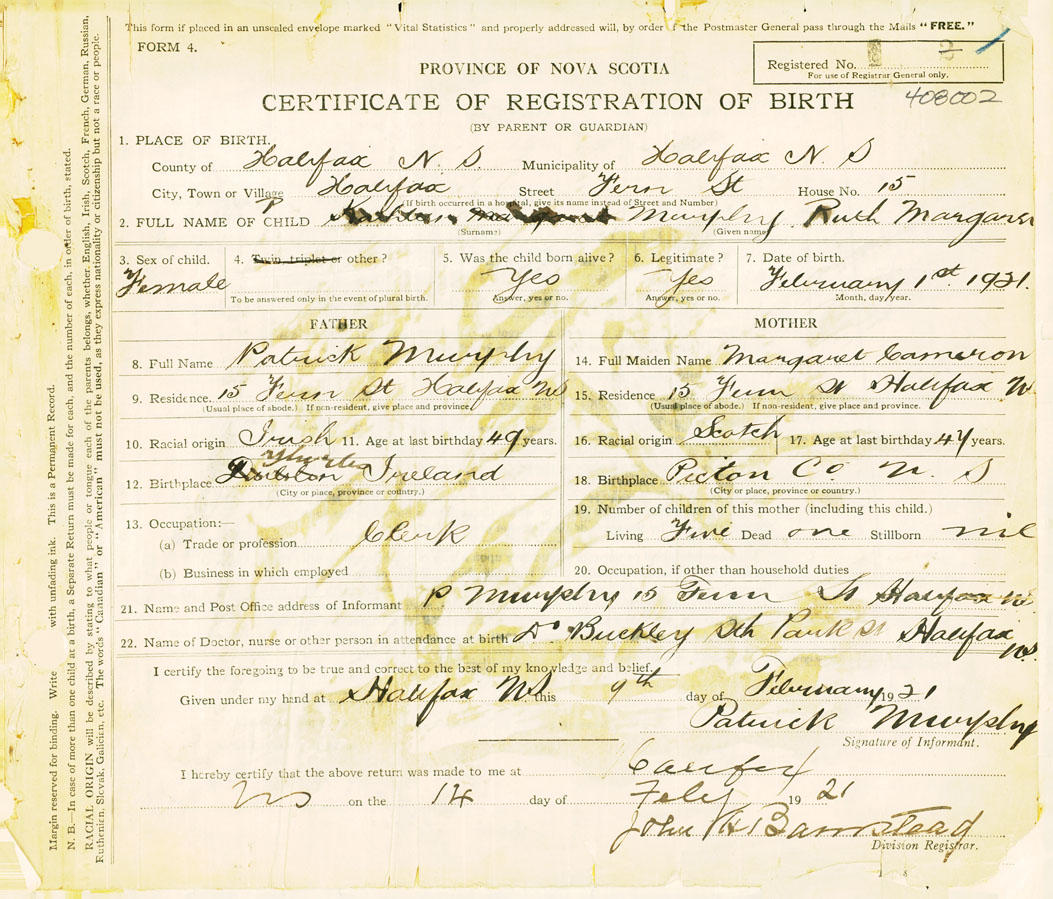 This form if placed in an unscaled envelope marked "Vital Statistics" and properly addressed will, by order of the Postmaster General pass through the Mails "FREE."
FORM 4.
Registered No.
For use of Registrar General only.
PROVINCE OF NOVA SCOTIA
CERTIFICATE OF REGISTRATION OF BIRTH
408002
(BY PARENT OR GUARDIAN)
1. PLACE OF BIRTH.
County of Halifax N. S. Municipality of Halifax N S
City, Town or Village Halifax Street Fern St House No. 15
(If birth occurred in a hospital, give its name instead of Street and Number)
2. FULL NAME OF CHILD Murphy Ruth Margaret
(Surname) (Given name)
3. Sex of child. Female
4. Twin, triplet or other?
To be answered only in the event of plural birth.
5. Was the child born alive? Yes
Answer, yes or no.
6. Legitimate? Yes
Answer, yes or no.
7. Date of birth. February 1st 1921.
Month, day/year.
FATHER
8. Full Name Patrick Murphy
9. Residence. 15 Fern St Halifax NS
(Usual place of abode.) If non-resident, give place and province
10. Racial origin Irish 11. Age at last birthday 49 years.
12. Birthplace Ireland
(City or place, province or country.)
13. Occupation:—
(a) Trade or profession Clerk
(b) Business in which employed
MOTHER
14. Full Maiden Name Margaret Cameron
15. Residence 15 Fern St Halifax N
(Usual place of abode.) If non-resident, give place and province.
16. Racial origin Scotch 17. Age at last birthday 44 years.
18. Birthplace Picton Co. N. S
(City or place, province or country.)
19. Number of children of this mother (including this child.)
Living Five Dead one Stillborn nil
20. Occupation, if other than household duties
21. Name and Post Office address of Informant P Murphy 15 Fern St Halifax NS
22. Name of Doctor, nurse or other person in attendance at birth Dr Buckley Sth Park St Halifax NS.
I certify the foregoing to be true and correct to the best of my knowledge and belief.
Given under my hand at Halifax NS this 9th day of February 1921
Patrick Murphy
Signature of Informant.
I hereby certify that the above return was made to me at Halifax
NS on the 14 day of Feby 1921
John H Barnstead
Division Registrar.
Margin reserved for binding. Write with unfading ink. This is a Permanent Record.
N. B.—In case of more than one child at a birth, a Separate Return must be made for each, and the number of each, in order of birth, stated.
RACIAL ORIGIN will be described by stating to what people or tongue each of the parents belongs, whether English, Irish, Scotch, French, German, Russian,
Ruthenien, Slovak, Galician, etc. The words "Canadian" or "American" must not be used, as they express nationality or citizenship but not a race or people.